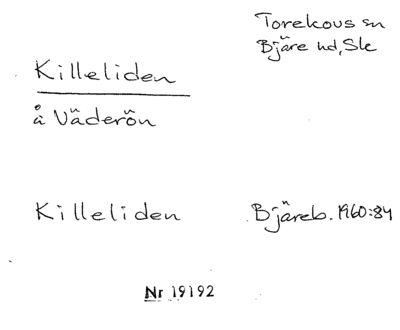 Torekovs sn
Bjäre hd, Sk
Killeliden
å Väderön
Killeliden Bjäreb. 1960:84
Nr 19192